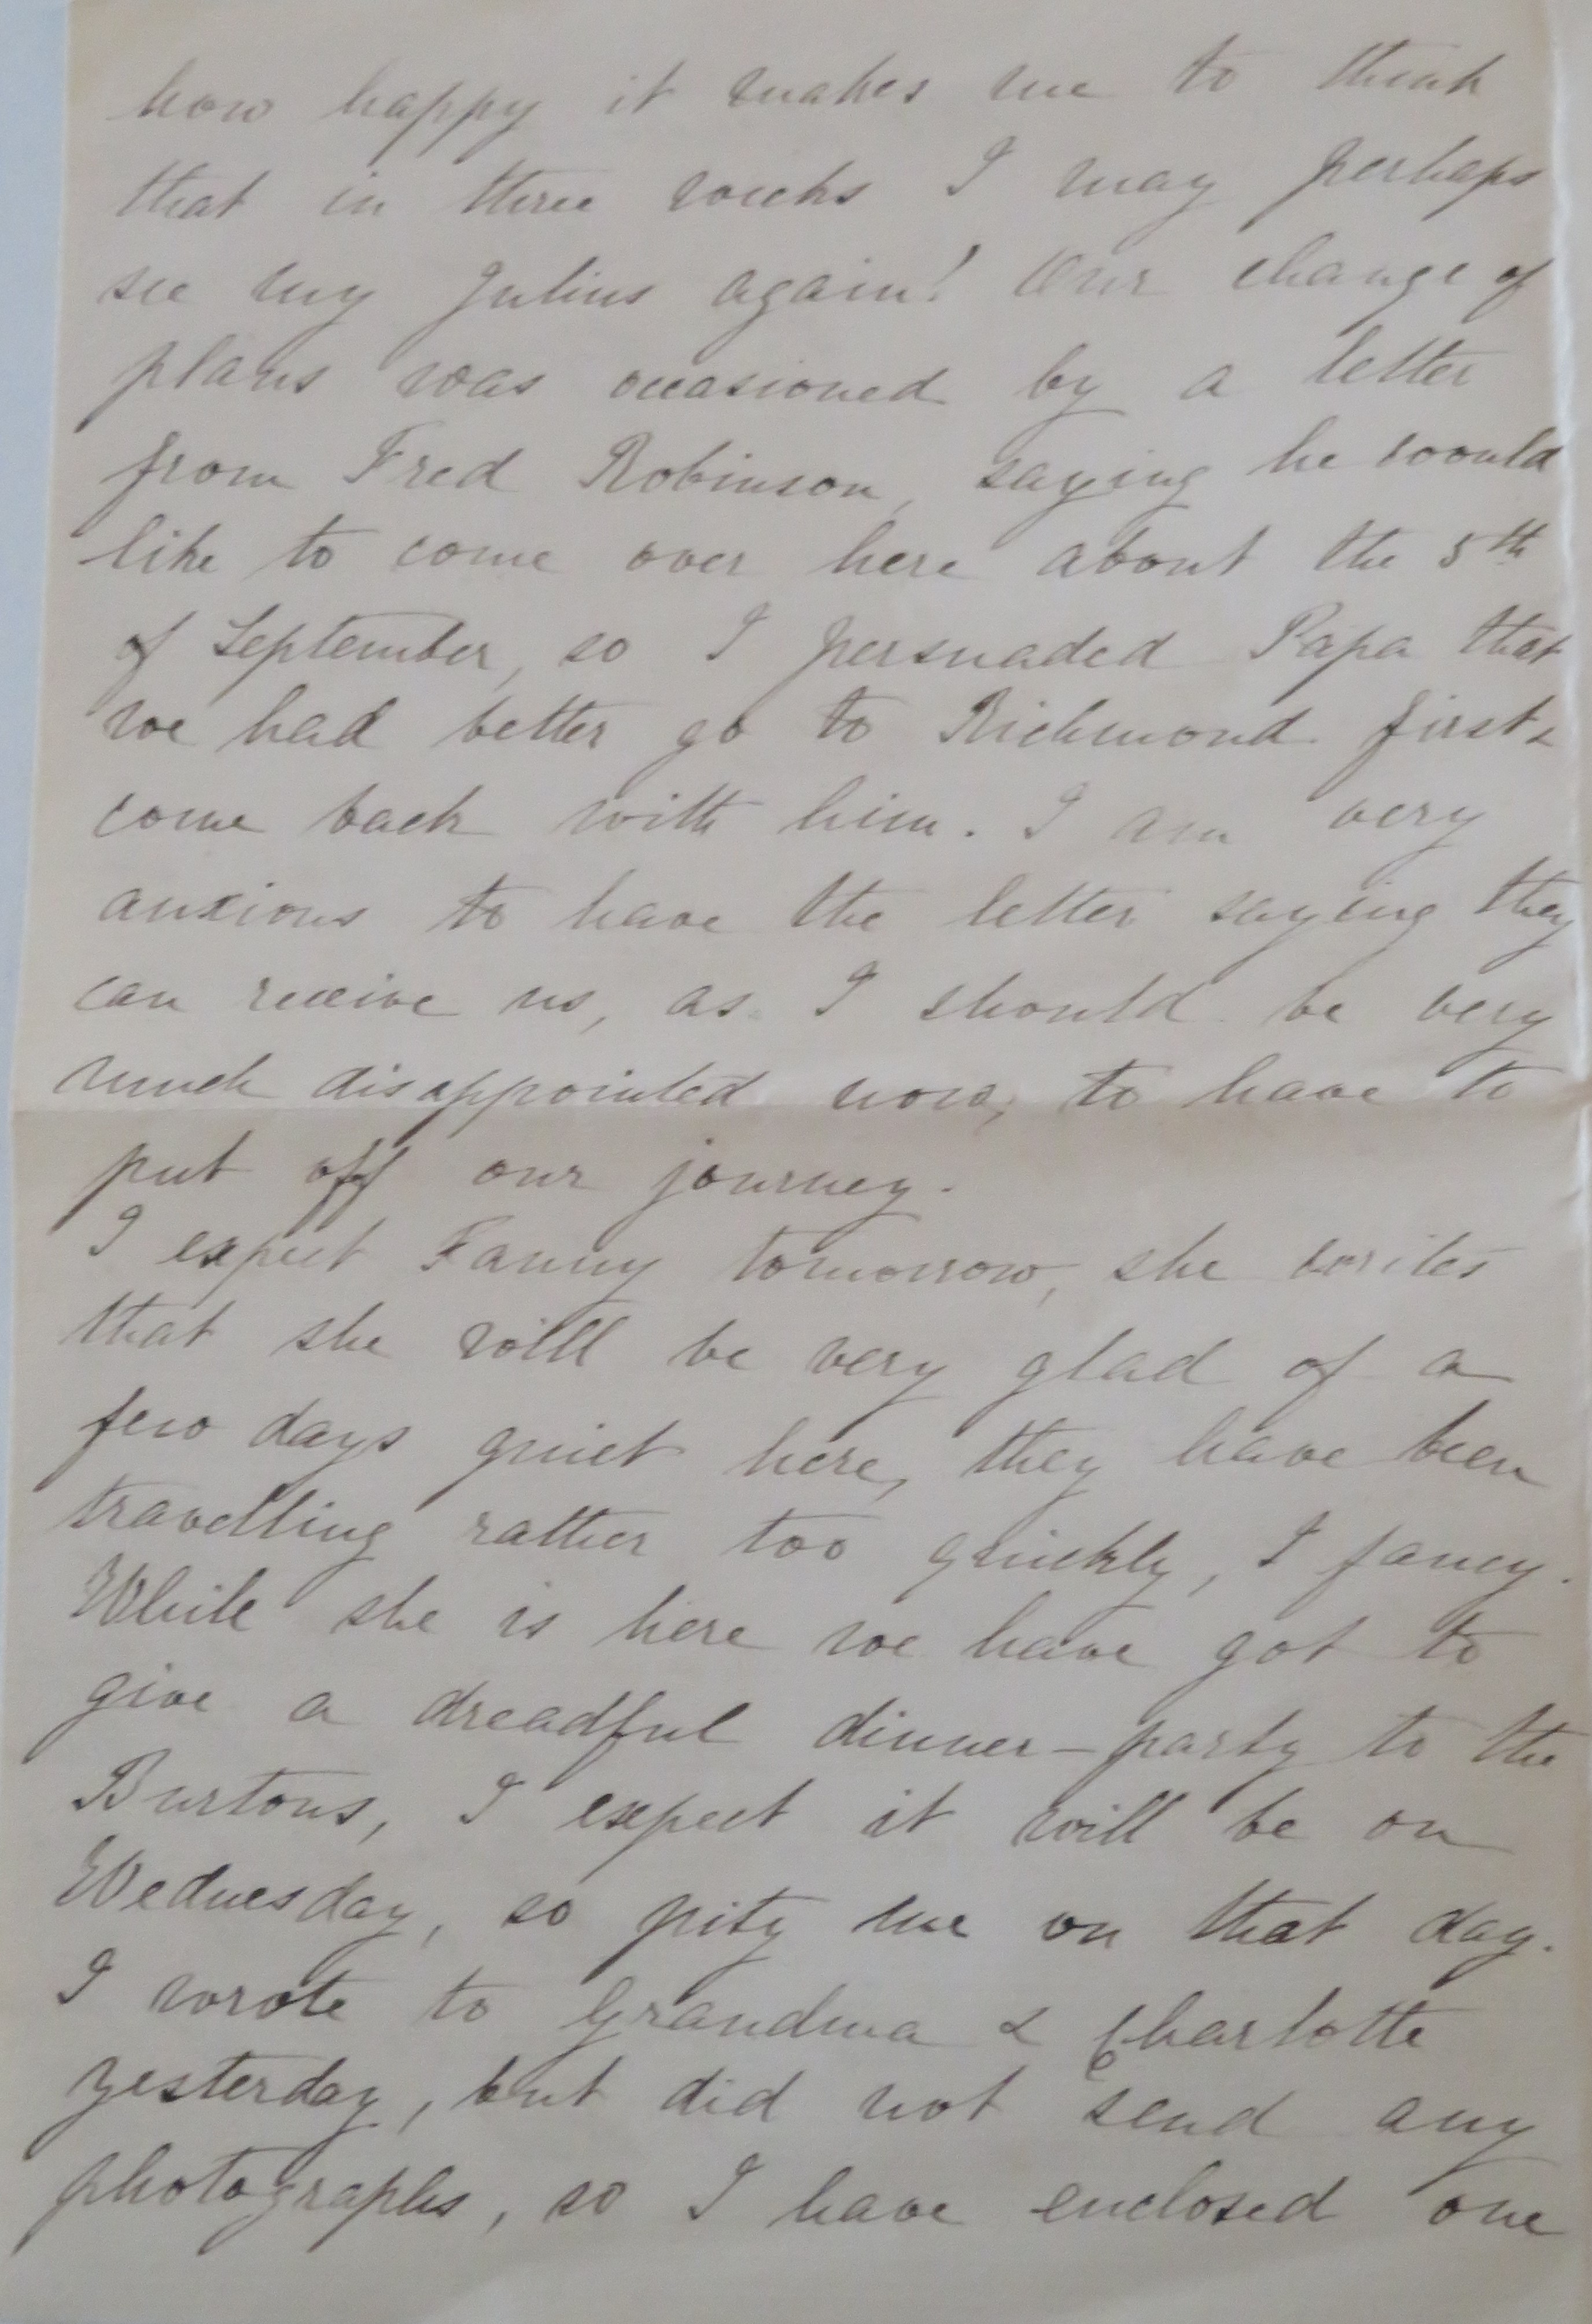 how happy it makes me to think
that in three weeks I may perhaps
see my Julius again! Our change of
plans was occasioned by a letter
from Fred Robinson, saying he would
like to come over here about the 5th
of September, so I persuaded Papa that
we had better go to Richmond first &
come back with him. I am very
anxious to have the letter saying they
can receive us, as I should be very
much disappointed now, to have to
put off our journey.
I expect Fanny tomorrow, she writes
that she will be very glad of a
few days quiet here, they have been
travelling rather too quickly, I fancy.
While she is here we have got to
give a dreadful dinner-party to the
Burtons, I expect it will be on
Wednesday, so pity me on that day.
I wrote to Grandma & Charlotte
yesterday, but did not send any
photographs, so I have enclosed one